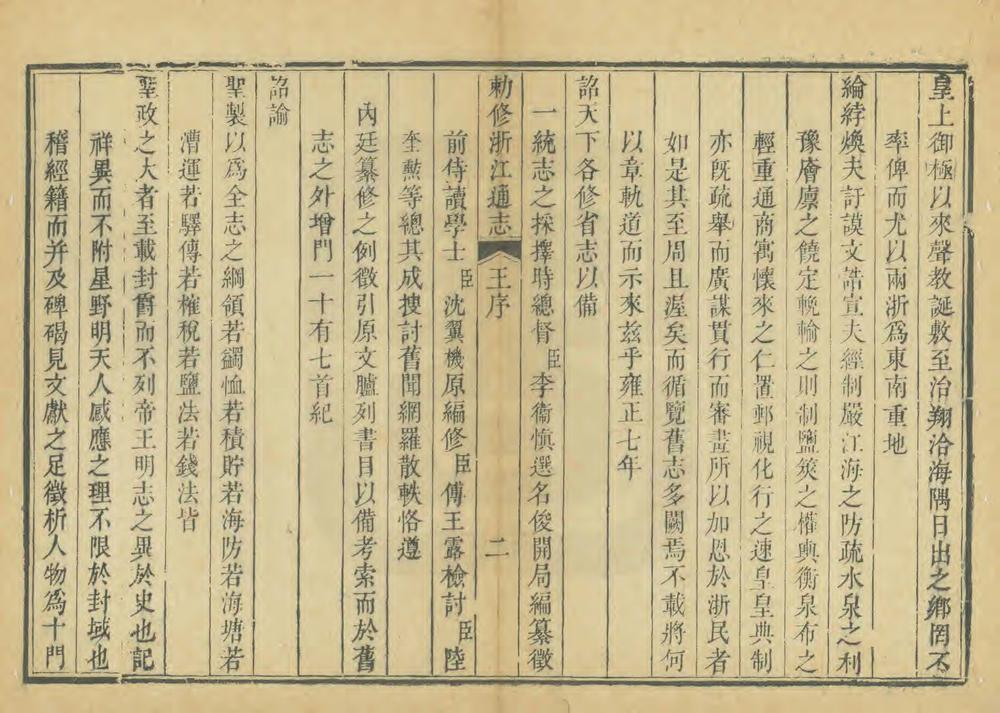 皇上御極以來聲教誕敷至治翔洽海隅日出之鄉罔不
率俾而尤以兩浙爲東南重地
綸綍煥夫訏謨文誥宣夫經制嚴江海之防疏水泉之利
豫廥廩之饒定輓輸之則制鹽筴之權輿衡泉布之
輕重通商寓懷來之仁置郵視化行之速皇皇典制
亦旣疏舉而廣謀貫行而審畫所以加恩於浙民者
如是其至周且渥矣而循覽舊志多闕焉不載將何
以章軌道而示來茲乎雍正七年
詔天下各修省志以備
一統志之採擇時總督臣李衞愼選名俊開局編纂徵
勅修浙江通志 王序 二
前侍讀學士臣沈翼機原編修臣傅王露檢討臣陸
奎勲等總其成搜討舊聞網羅散軼恪遵
內廷纂修之例徵引原文臚列書目以備考索而於舊
志之外增門一十有七首紀
詔諭
聖製以爲全志之綱領若蠲恤若積貯若海防若海塘若
漕運若驛傳若榷稅若鹽法若錢法皆
聖政之大者至載封爵而不列帝王明志之異於史也記
祥異而不附星野明天人感應之理不限於封域也
稽經籍而并及碑碣見文獻之足徵析人物爲十門